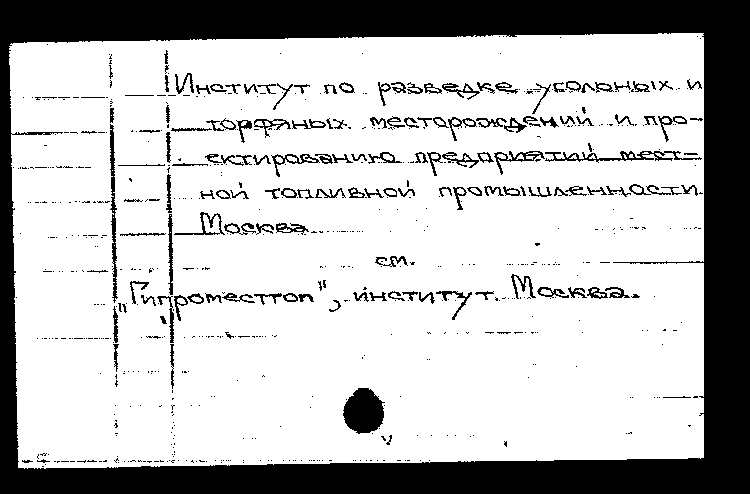 Институт по разведке угольных и
торфяных месторождений и про-
ектированию предприятий мест-
ной топливной промышленности
Москва
см.
„Гипроместтоп", институт. Москва.